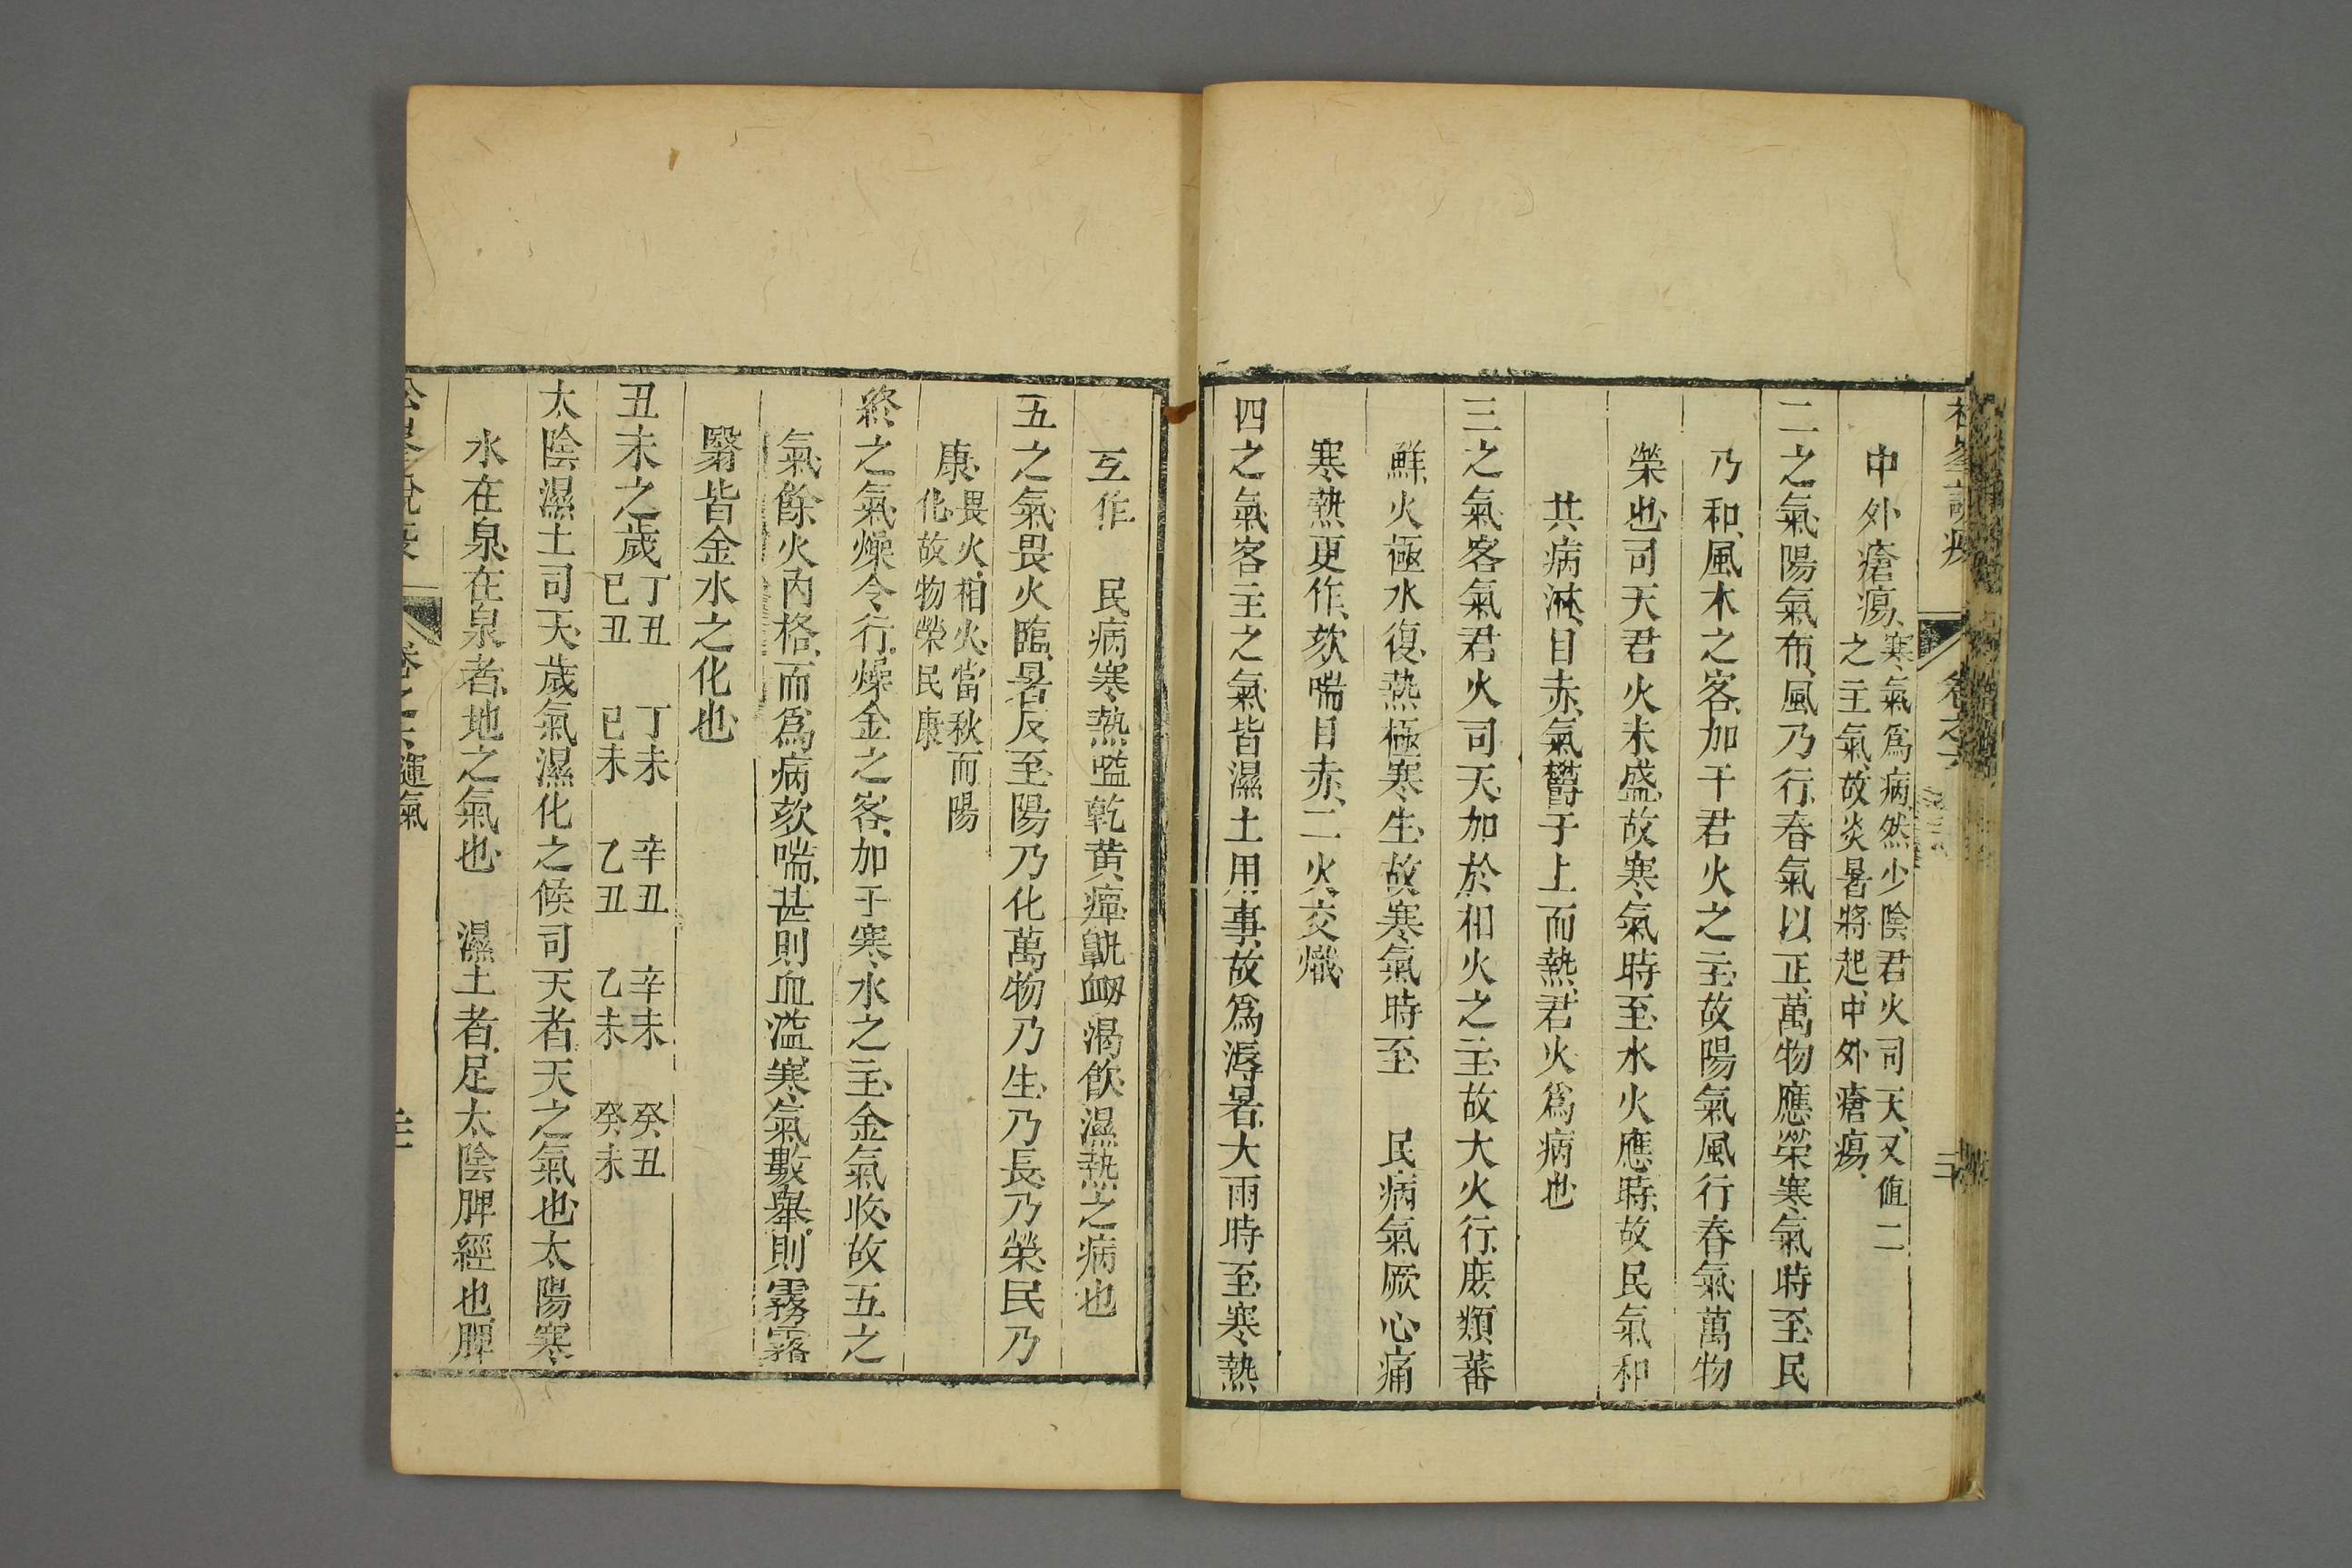 松峯說疫 卷之六 二
中外瘡瘍寒氣爲病然少陰君火司天又值二
之主氣故炎暑將起中外瘡瘍
二之氣陽氣布風乃行春氣以正萬物應榮寒氣時至民
乃和風木之客加于君火之主故陽氣風行春氣萬物
榮也司天君火未盛故寒氣時至水火應時故民氣和
其病淋目赤氣鬱于上而熱君火爲病也
三之氣客氣君火司天加於相火之主故大火行庶類蕃
鮮火極水復熱極寒生故寒氣時至 民病氣厥心痛
寒熱更作欬喘目赤二火交熾
四之氣客主之氣皆濕土用事故爲溽暑大雨時至寒熱
互作 民病寒熱嗌乾黃癉鼽衄渴飲濕熱之病也
五之氣畏火臨暑反至陽乃化萬物乃生乃長乃榮民乃
康畏火相火當秋而陽
化故物榮民康
終之氣燥令行燥金之客加于寒水之主金氣收故五之
氣餘火內格而爲病欬喘甚則血溢寒氣數舉則霧霿
翳皆金水之化也
丑未之歲丁丑 丁未 辛丑 辛未 癸丑
己丑 己未 乙丑 乙未 癸未
太陰濕土司天歲氣濕化之候司天者天之氣也太陽寒
水在泉在泉者地之氣也 濕土者足太陰脾經也脾
松峯說疫 卷之六運氣 二